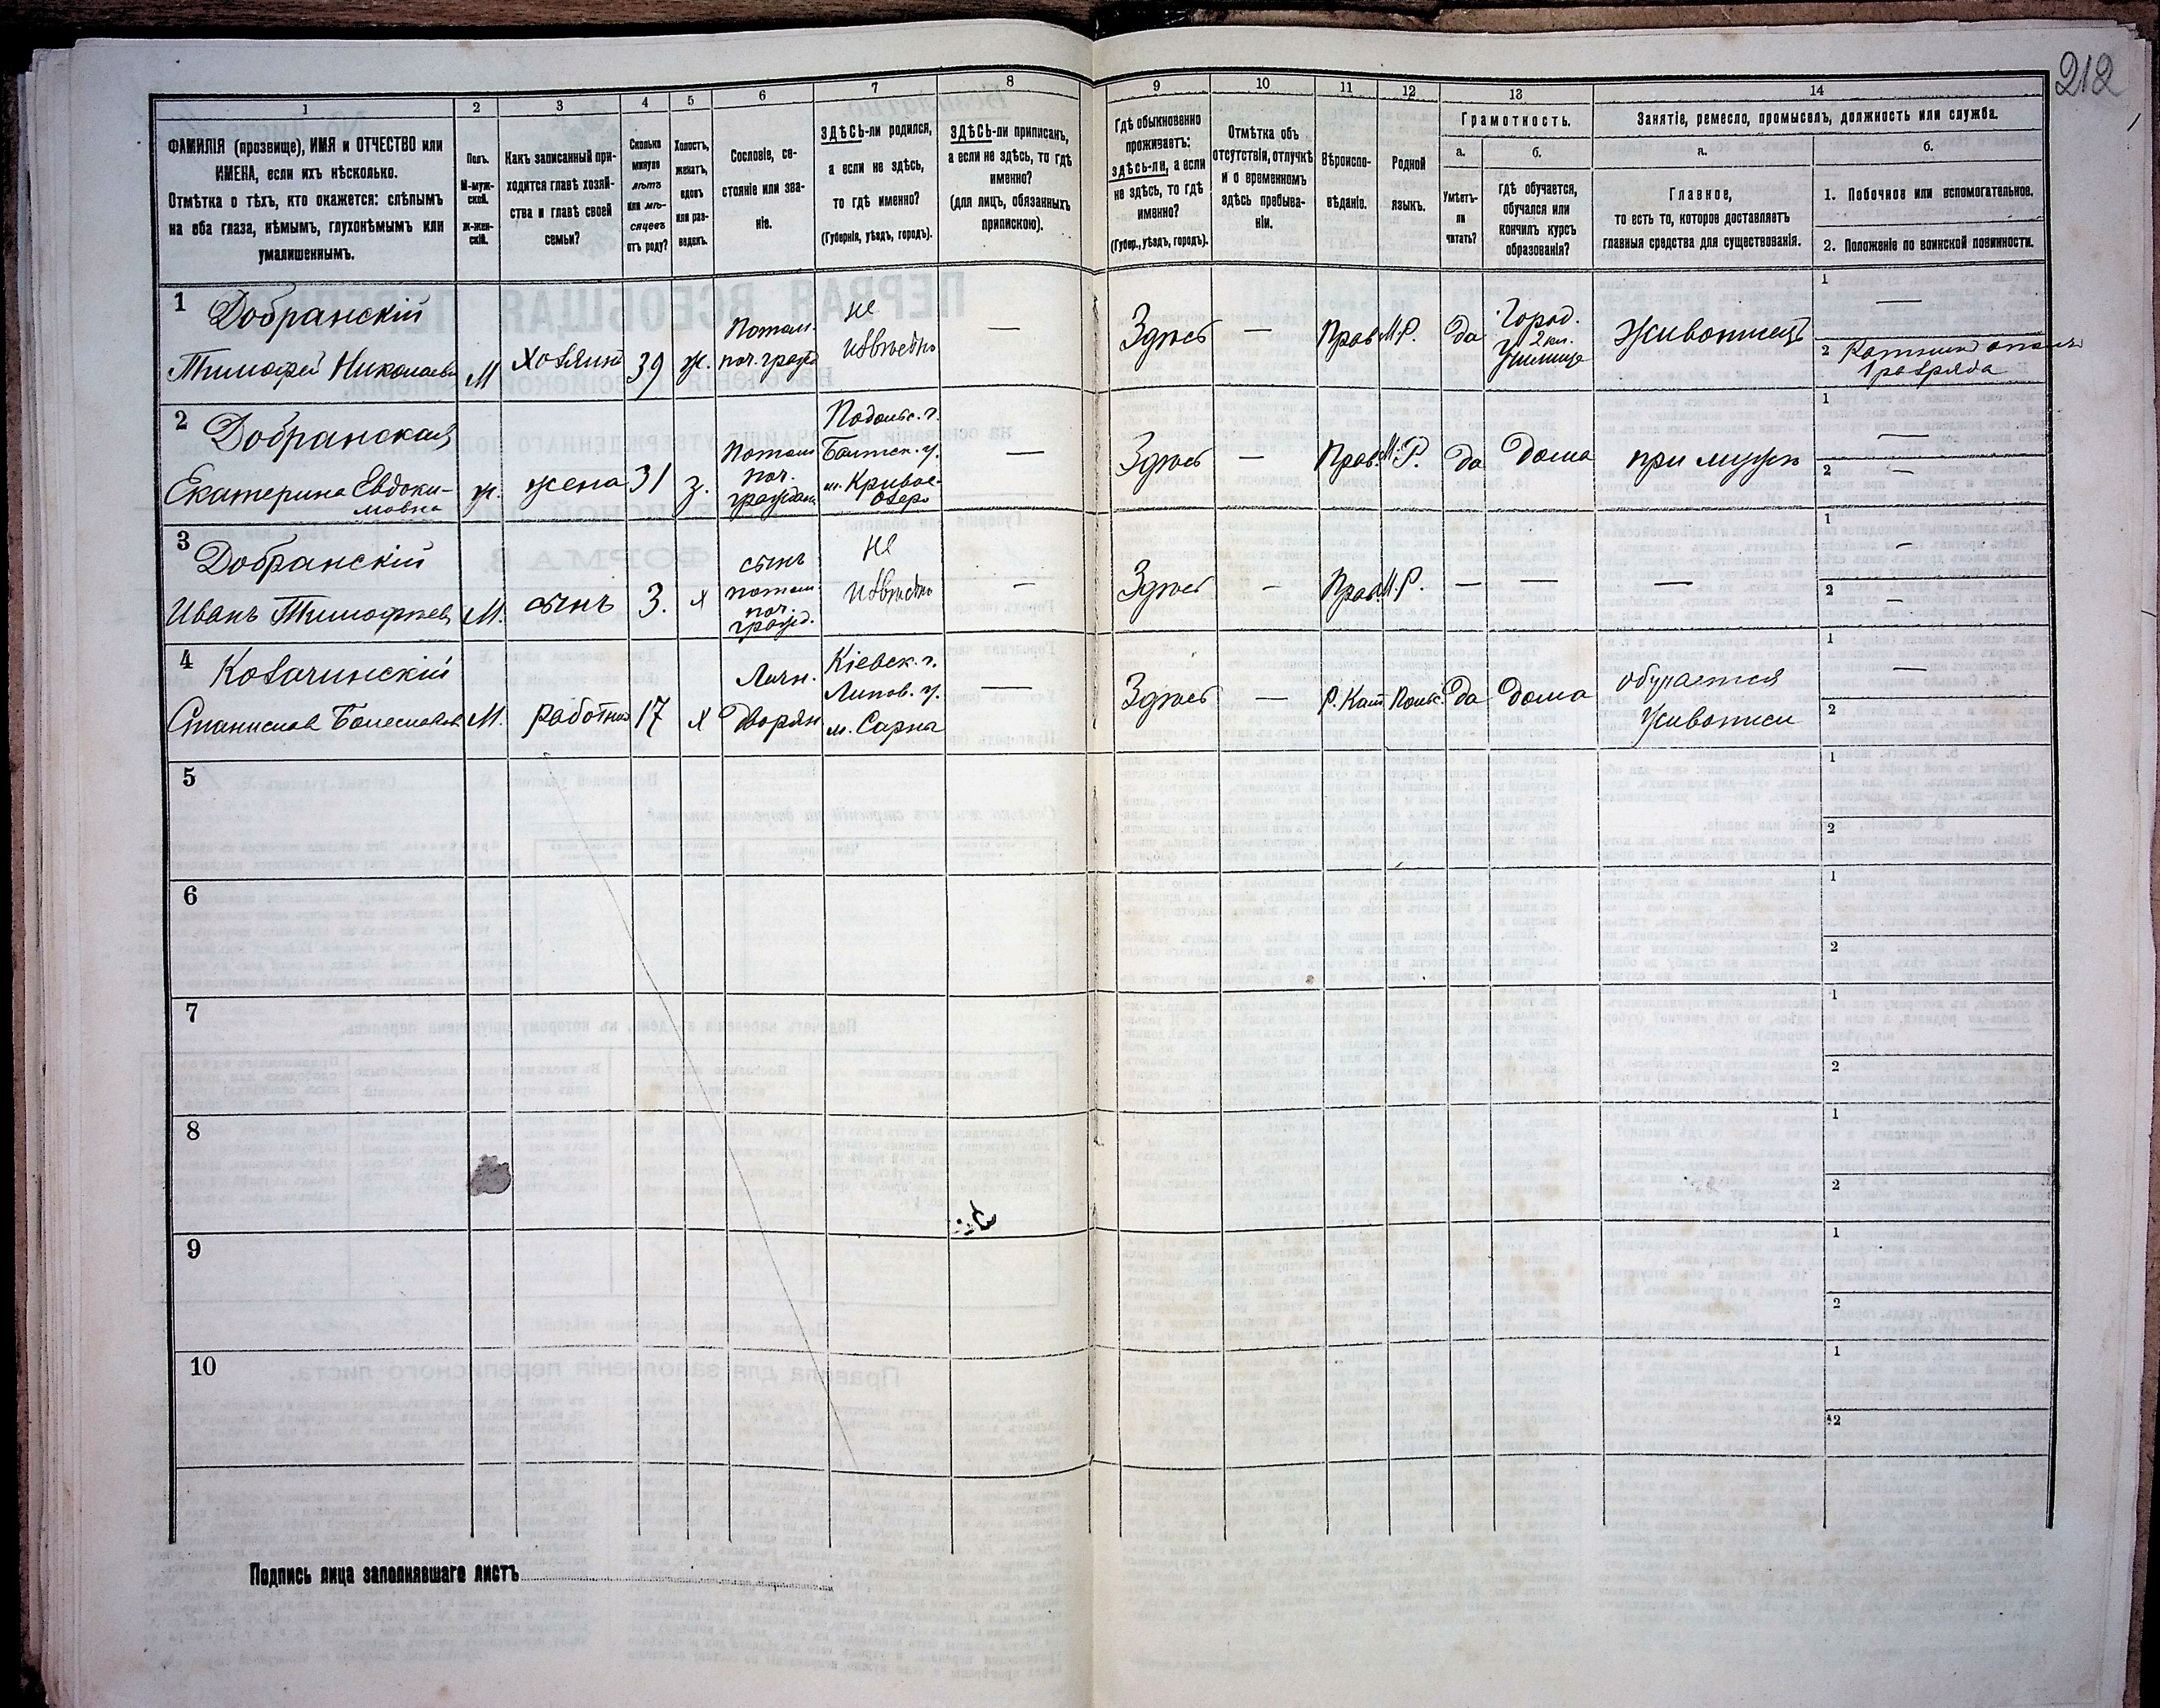 212
1 2 3 4 5 6 7 8 9 10 11 12 13 14
ФАМИЛІЯ (прозвище), ИМЯ и ОТЧЕСТВО или
ИМЕНА, если ихъ нѣсколько.
Отмѣтка о тѣхъ, кто окажется: слѣпымъ
на оба глаза, нѣмымъ, глухонѣмымъ или
умалишеннымъ.
Полъ.
М-муж-
ской.
Ж-жен-
скій.
Какъ записанный при-
ходится главѣ хозяй-
ства и главѣ своей
семьи?
Сколько
минуло
лѣтъ
или мѣ-
сяцевъ
отъ роду?
Холостъ,
женатъ,
вдовъ
или раз-
веденъ.
Сословіе, со-
стояніе или зва-
ніе.
ЗДѢСЬ-ли родился,
а если не здѣсь,
то гдѣ именно?
(Губернія, уѣздъ, городъ).
ЗДѢСЬ-ли приписанъ,
а если не здѣсь, то гдѣ
именно?
(для лицъ, обязанныхъ
припискою).
Гдѣ обыкновенно
проживаетъ:
здѣсь-ли, а если
не здѣсь, то гдѣ
именно?
(Губер., уѣздъ, городъ).
Отмѣтка объ
отсутствіи, отлучкѣ
и о временномъ
здѣсь пребыва-
ніи.
Вѣроиспо-
вѣданіе.
Родной
языкъ.
Грамотность.
а.
Умѣетъ-
ли
читать?
б.
гдѣ обучается,
обучался или
кончилъ курсъ
образованія?
Занятіе, ремесло, промыселъ, должность или служба.
а.
Главное,
то есть то, которое доставляетъ
главныя средства для существованія.
б.
1. Побочное или вспомогательное.
2. Положеніе по воинской повинности.
1 Добранскій
Тимофей Николаевъ
М
Хозяинъ
39
ж.
Потом.
поч. гражд
не
извѣстно
—
Здѣсь
—
Прав.
М.Р.
Да
Город.
2 кл.
Училище
Живописецъ
1 —
2 Ратникъ ополч
1 разряда
2 Добранская
Екатерина Евдоки-
мовна
ж.
жена
31
з.
Потом
поч.
граждан
Подольс. г.
Балтск. у.
м. Кривое-
Озеро
—
Здѣсь
—
Прав.
М.Р.
Да
Дома
при мужѣ
1 —
2 —
3 Добранскій
Иванъ Тимофѣевъ
М.
сынъ
3.
х
сынъ
потом
поч.
гражд.
не
извѣстно
—
Здѣсь
—
Прав.
М.Р.
—
—
—
1 —
2 —
4 Козачинскій
Станиславъ Болеславовъ
М.
работник
17
х
Личн.
Дворян
Кіевск. г.
Липов. у.
м. Сарна
—
Здѣсь
—
Р. Кат
Польс.
Да
Дома
обучается
живописи
1 —
2
5 1
2
6 1
2
7 1
2
8 1
2
9 1
2
10 1
2
Подпись лица заполнявшаго листъ